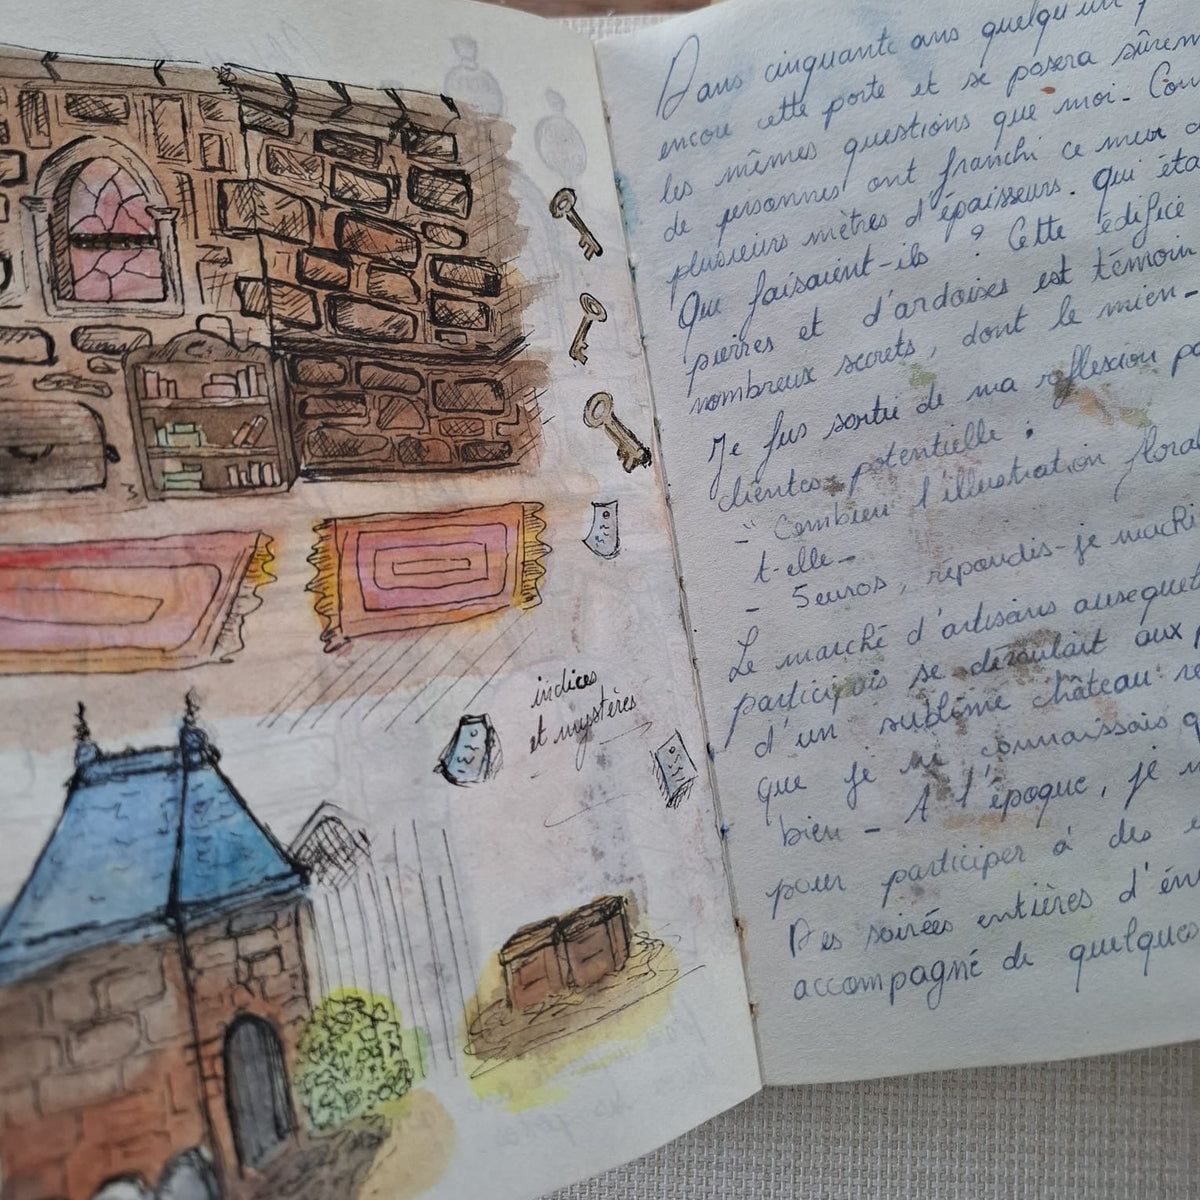 indices
et mystères
Dans cinquante ans quelqu'un
encore cette porte et se posera
les mêmes questions que moi -
de personnes ont franchi ce mur
plusieurs mètres d'épaisseurs. Qui
Que faisaient-ils ? Cette édifice
pierres et d'ardoises est témoin
nombreux secrets, dont le mien -
Je fus sortie de ma réflexion
clientes potentielle :
- Combien l'illustration
t-elle -
- 5 euros, répondis-je
Le marché d'artisans auxquel
participais se déroulait aux
d'un sublime château
que je ne connaissais
bien - A l'époque, je
pour participer à des
Des soirées entières
accompagné de quelques